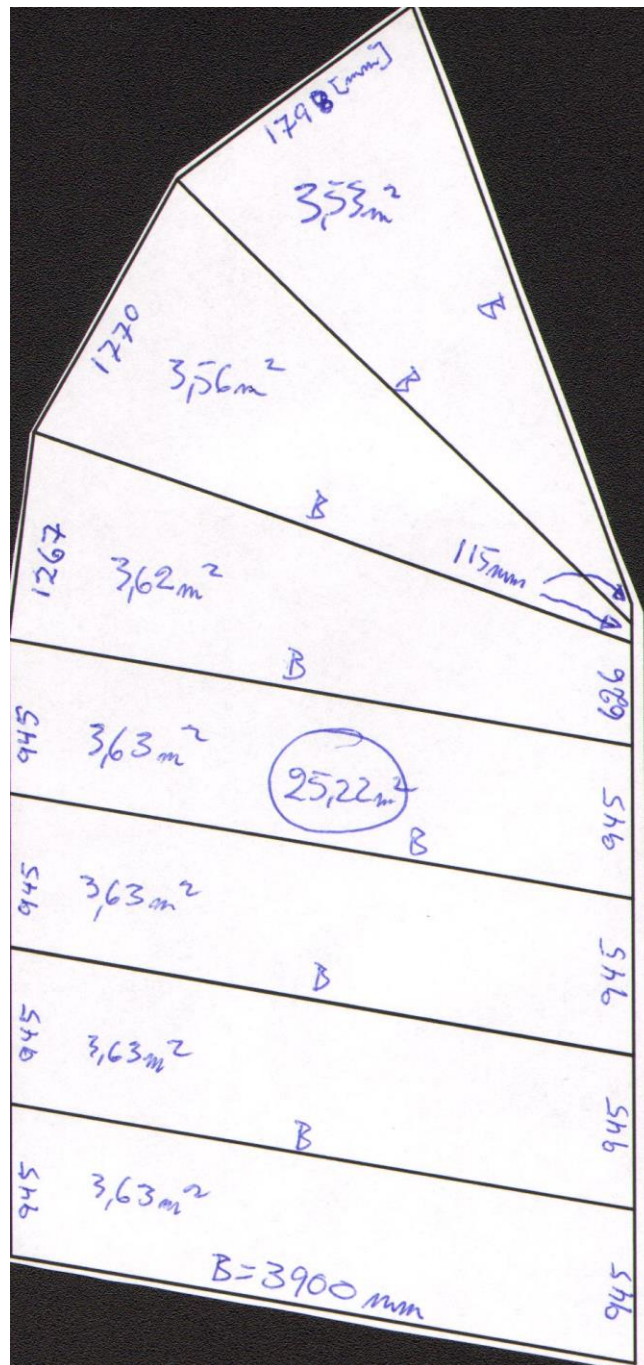 1798 [mm]
3,53m²
B
1770
3,56m²
B
B
115mm
1267
3,62m²
626
B
945
3,63m²
25,22m²
945
B
945
3,63m²
945
B
945
3,63m²
945
B
945
3,63m²
945
B=3900mm